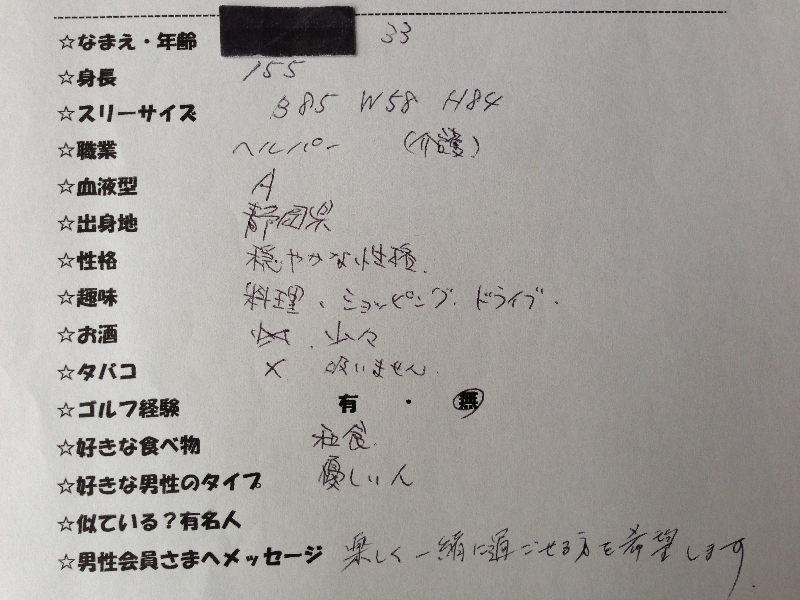 ☆なまえ・年齢 33
☆身長 155
☆スリーサイズ B85 W58 H84
☆職業 ヘルパー (介護)
☆血液型 A
☆出身地 静岡県
☆性格 穏やかな性格.
☆趣味 料理、ショッピング、ドライブ.
☆お酒 少々
☆タバコ × 吸いません.
☆ゴルフ経験 有・無
☆好きな食べ物 和食.
☆好きな男性のタイプ 優しい人
☆似ている?有名人
☆男性会員さまへメッセージ 楽しく一緒に過ごせる方を希望します.